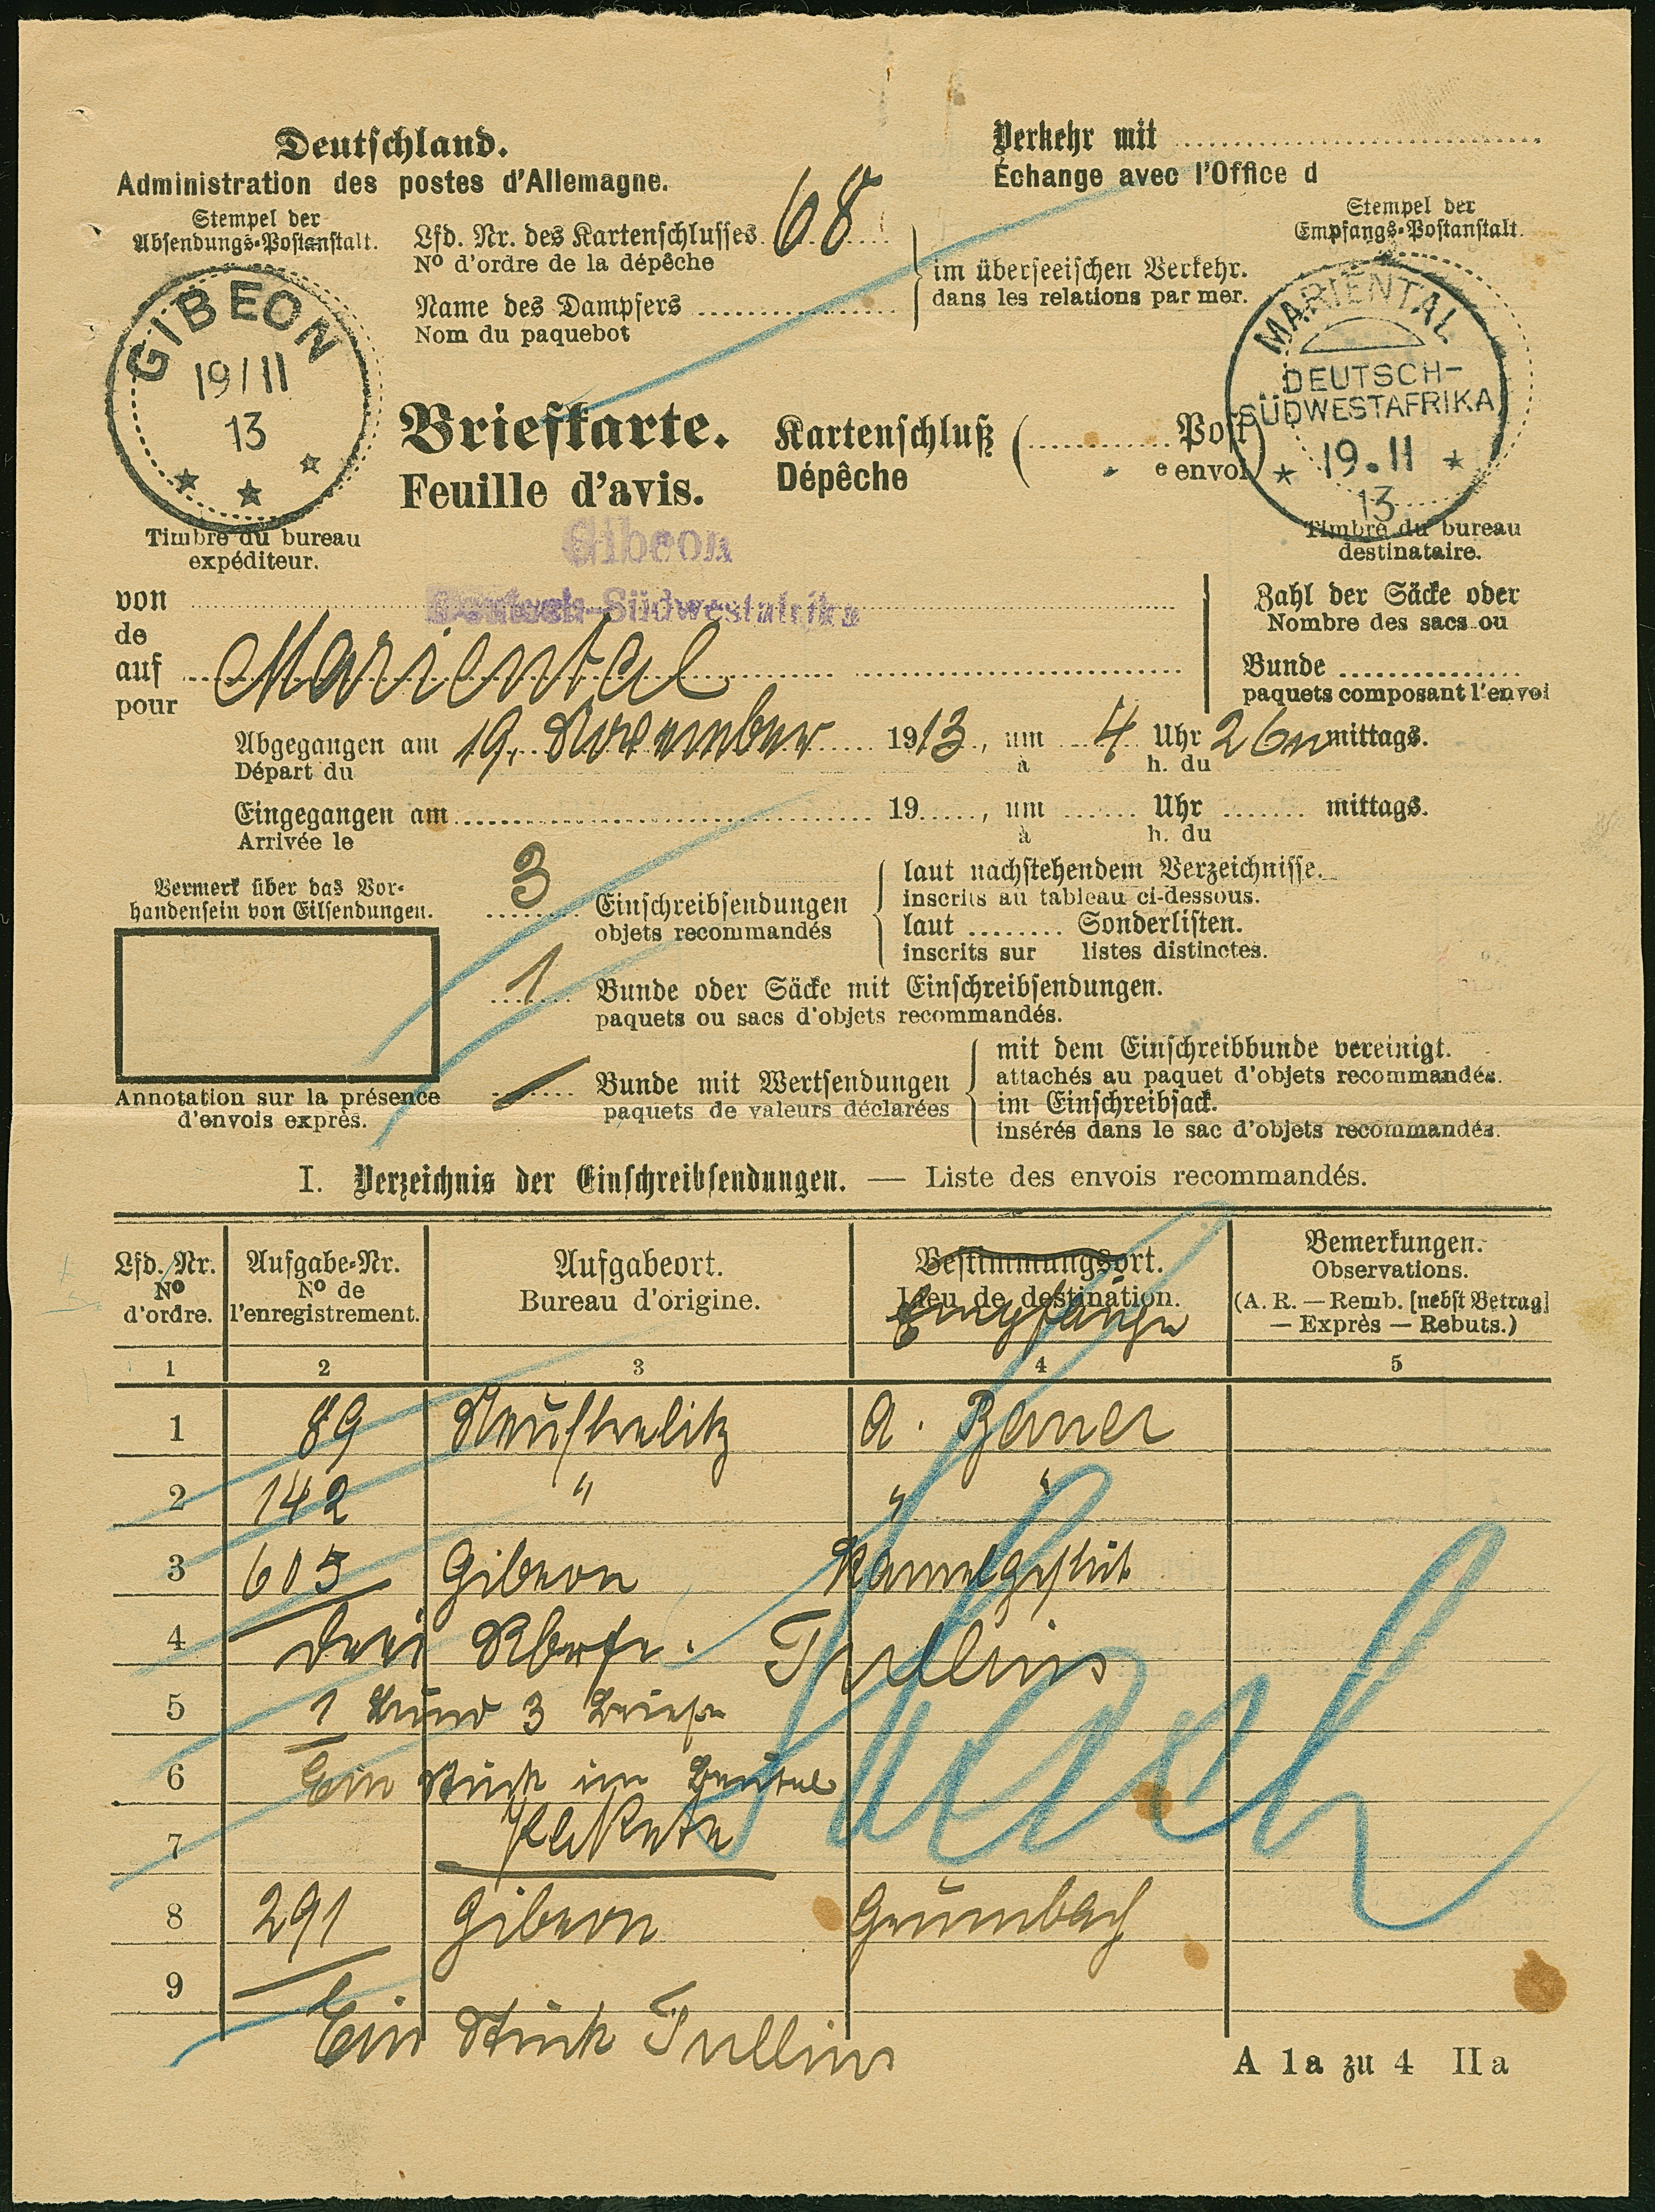 Deutschland.
Administration des postes d'Allemagne.
Verkehr mit
Échange avec l'Office d
Stempel der
Absendungs-Postanstalt.
Lfd. Nr. des Kartenschlusses 68
Nº d'ordre de la dépêche
Name des Dampfers
Nom du paquebot
im überseeischen Verkehr.
dans les relations par mer.
Stempel der
Empfangs-Postanstalt.
GIBEON
19/11
13
MARIENTAL
DEUTSCH-
SÜDWESTAFRIKA
19.11
13
Briefkarte.
Feuille d'avis.
Kartenschluß ( Post)
Dépêche e envoi
Timbre du bureau
expéditeur.
Timbre du bureau
destinataire.
Gibeon
Deutsch-Südwestafrika
von
de
auf Mariental
pour
Zahl der Säcke oder
Nombre des sacs ou
Bunde
paquets composant l'envoi
Abgegangen am 19. November 1913, um 4 Uhr 26 n mittags.
Départ du à h. du
Eingegangen am 19 , um Uhr mittags.
Arrivée le à h. du
Vermerk über das Vor-
handensein von Eilsendungen.
Annotation sur la présence
d'envois exprès.
3 Einschreibsendungen
objets recommandés
laut nachstehendem Verzeichnisse.
inscrits au tableau ci-dessous.
laut Sonderlisten.
inscrits sur listes distinctes.
1 Bunde oder Säcke mit Einschreibsendungen.
paquets ou sacs d'objets recommandés.
Bunde mit Wertsendungen
paquets de valeurs déclarées
mit dem Einschreibbunde vereinigt.
attachés au paquet d'objets recommandés.
im Einschreibsack.
insérés dans le sac d'objets recommandés.
I. Verzeichnis der Einschreibsendungen. — Liste des envois recommandés.
Lfd. Nr.
Nº
d'ordre.
Aufgabe-Nr.
Nº de
l'enregistrement.
Aufgabeort.
Bureau d'origine.
Bestimmungsort.
Lieu de destination.
Empfänger
Bemerkungen.
Observations.
(A. R. — Remb. [nebst Betrag]
— Exprès — Rebuts.)
1 2 3 4 5
1 89 Neustrelitz A. Bauer
2 142 " " "
3 605 Gibeon Kamelgestüt
4 drei Tullius
5 1 Bund 3 Briefe
6 Ein Stück im Beutel
7 Pakete
8 291 Gibeon Grumbach
9
Ein Stück Tullius
A 1a zu 4 IIa